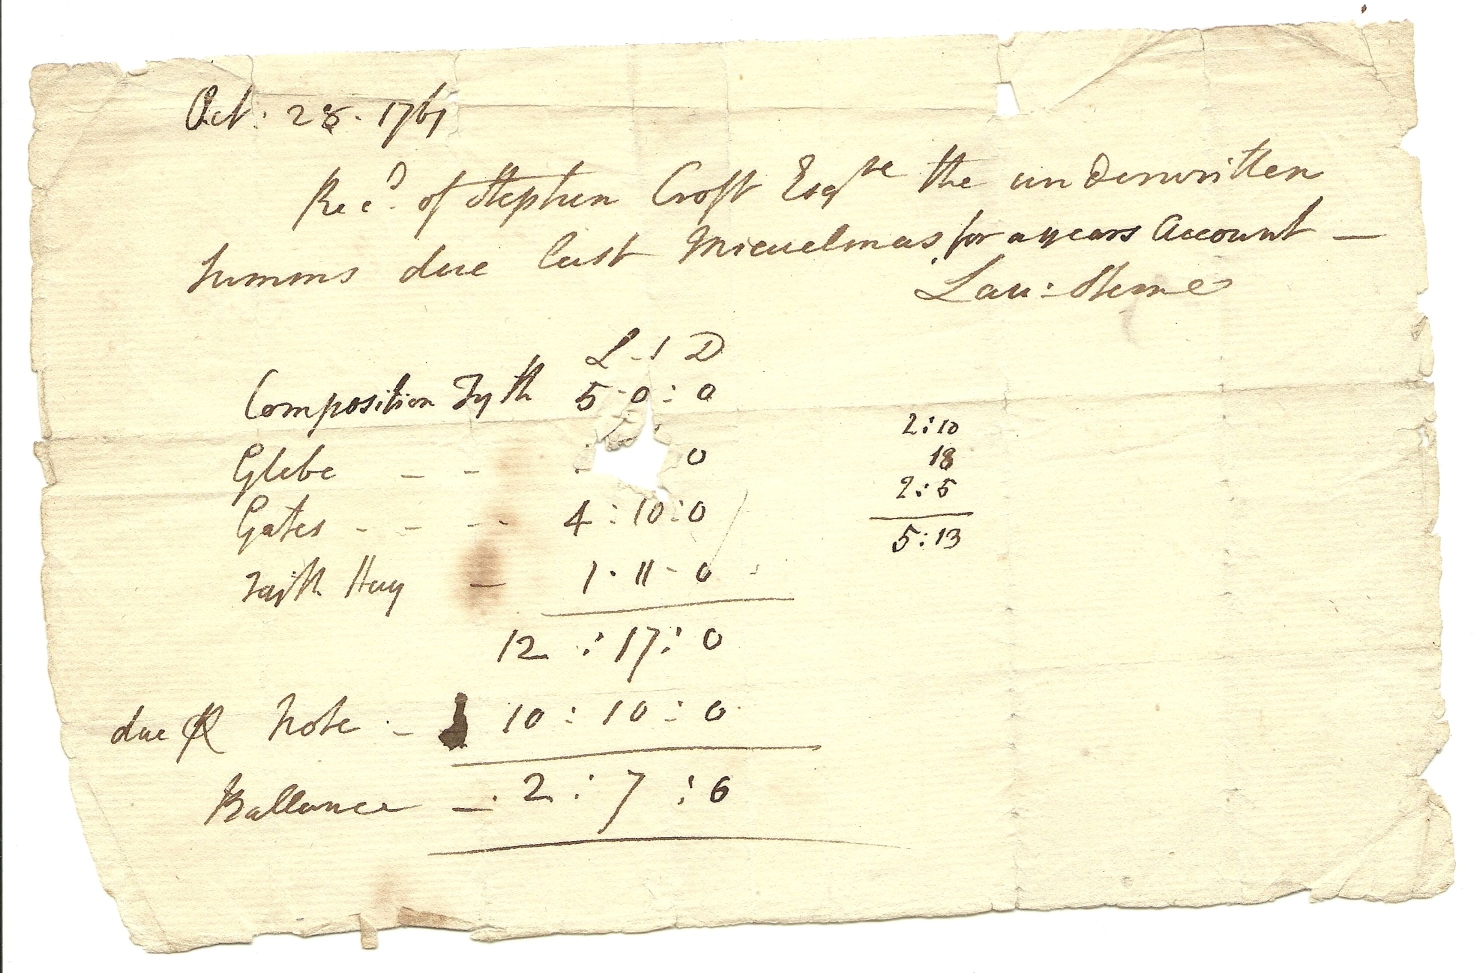 Oct: 25. 1761
Rec.d of Stephen Croft Esqre the underwritten
Summs due last Micuelmas for a years Account —
Lau: Sterne
L - S D
Composition Tyth 5 - 0 : 0
Glebe — - 0
Gates - - - - 4 : 10 : 0
Tayth Hay — 1 - 11 - 0
12 : 17 : 0
due Note - 10 : 10 : 0
Ballance — 2 : 7 : 0
2 : 10
18
2 : 5
5 : 13